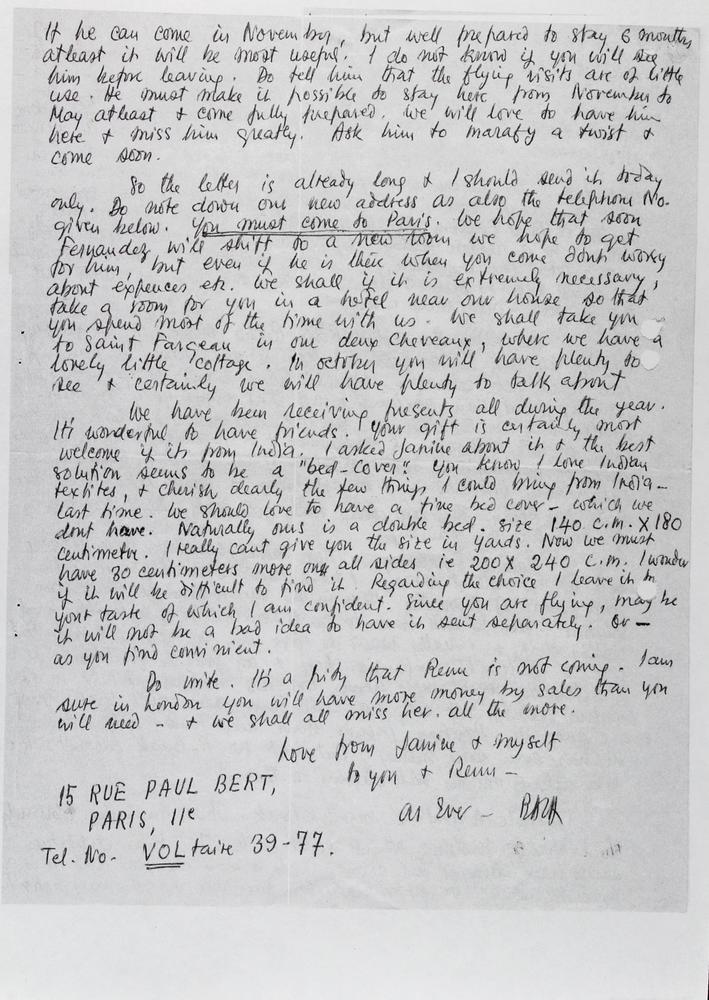 If he can come in November, but well prepared to stay 6 months
atleast it will be most useful. I do not know if you will see
him before leaving. Do tell him that the flying visits are of little
use. He must make it possible to stay here from November to
May atleast & come fully prepared. We will love to have him
here & miss him greatly. Ask him to marafy a twist &
come soon.
So the letter is already long & I should send it today
only. Do note down our new address as also the telephone No.
given below. You must come to Paris. We hope that soon
Fernandez will shift to a new room we hope to get
for him, but even if he is there when you come dont worry
about expences etc. We shall if it is extremely necessary,
take a room for you in a hotel near our house so that
you spend most of the time with us. We shall take you
to Saint Fargeau in our deux Cheveaux, where we have a
lovely little cottage. In october you will have plenty to
see & certainly we will have plenty to talk about
We have been receiving presents all during the year.
It's wonderful to have friends. Your gift is certainly most
welcome if its from India. I asked Janine about it & the best
solution seems to be a "bed-cover". You know I love Indian
textiles, & cherish dearly the few things I could bring from India -
last time. We should love to have a fine bed cover - which we
dont have. Naturally ours is a double bed. Size 140 c.m. X 180
centimetre. I really cant give you the size in yards. Now we must
have 30 centimeters more on all sides ie 200 X 240 c.m. I wonder
if it will be difficult to find it. Regarding the choice I leave it to
your taste of which I am confident. Since you are flying, may be
it will not be a bad idea to have it sent separately. Or -
as you find convinient.
Do write. It's a pity that Renu is not coming. I am
sure in London you will have more money by sales than you
will need - & we shall all miss her. all the more.
Love from Janine & myself
to you & Renu -
as Ever -
15 RUE PAUL BERT,
PARIS, 11e
Tel. No. VOLtaire 39-77.